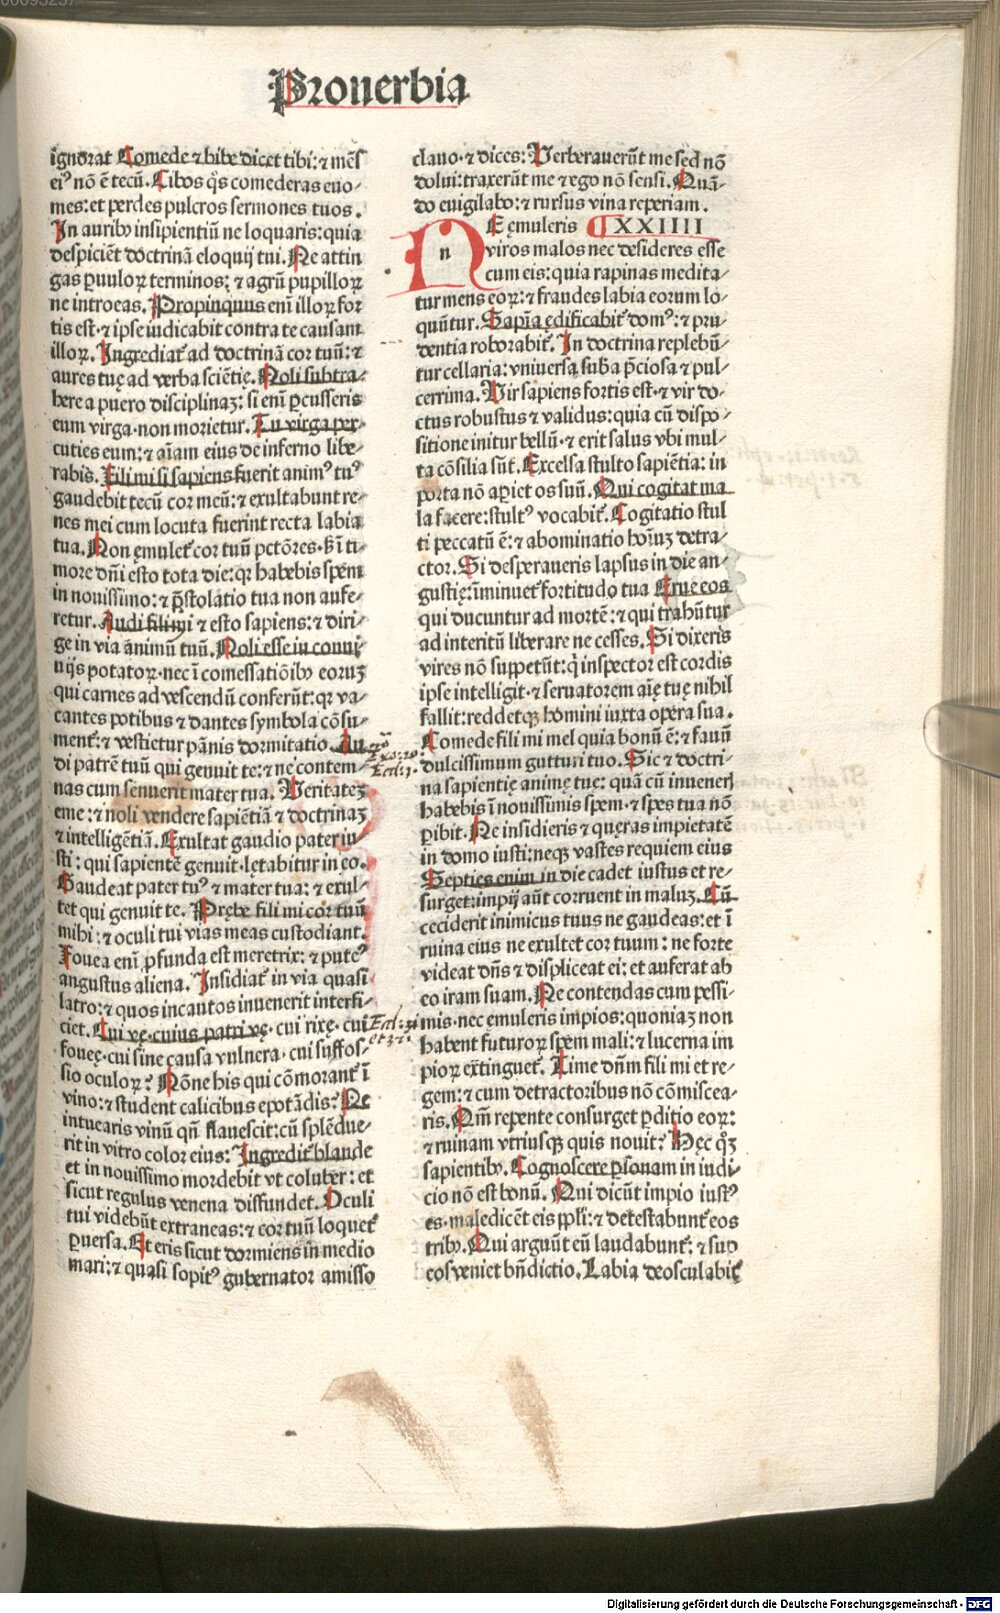 00093257
Prouerbia
ignorat Comede ⁊ bibe dicet tibi: ⁊ mēs
eiꝰ nō ē tecū. Cibos q̄s comederas euo⸗
mes: et perdes pulcros sermones tuos.
In auribꝰ insipientiū ne loquaris: quia
despiciēt doctrinā eloquij tui. Ne attin
gas ꝑuuloꝝ terminos: ⁊ agrū pupilloꝝ
ne introeas. Propinquus enī illoꝝ for
tis est ⁊ ipse iudicabit contra te causam
illoꝝ. Ingrediat᷑ ad doctrinā cor tuū: ⁊
aures tuę ad verba sciētię. Noli subtra⸗
here a puero disciplinaꝫ: si enī ꝑcusseris
eum virga non morietur. Tu virga per
cuties eum: ⁊ aīam eius de inferno libe⸗
rabis. Fili mi si sapiens fuerit animꝰ tuꝰ
gaudebit tecū cor meū: ⁊ exultabunt re⸗
nes mei cum locuta fuerint recta labia
tua. Non ęmulet᷑ cor tuū pctōres. sꝫ ī ti⸗
more dn̄i esto tota die: qꝛ habebis spem
in nouissimo: ⁊ p̄stolatio tua non aufe⸗
retur. Audi fili mi ⁊ esto sapiens: ⁊ diri⸗
ge in via animū tuū. Noli esse in conui
uijs potatoꝝ. nec ī comessatiōibꝰ eoruꝫ
qui carnes ad vescendū conferūt: qꝛ va⸗
cantes potibus ⁊ dantes symbola cōsu⸗
ment᷑: ⁊ vestietur pānis dormitatio. Au
di patrē tuū qui genuit te: ⁊ ne contem⸗
nas cum senuerit mater tua. Veritateꝫ
eme: ⁊ noli vendere sapiētiā ⁊ doctrinaꝫ
⁊ intelligētiā. Exultat gaudio pater iu⸗
sti: qui sapientē genuit lętabitur in eo.
Gaudeat pater tuꝰ ⁊ mater tua: ⁊ exul⸗
tet qui genuit te. Prębe fili mi cor tuū
mihi: ⁊ oculi tui vias meas custodiant.
Fouea enī ꝓfunda est meretrix: ⁊ puteꝰ
angustus aliena. Insidiat᷑ in via quasi
latro: ⁊ quos incautos inuenerit interfi⸗
ciet. Cui vę. cuius patri vę. cui rixę. cui
fouęę. cui sine causa vulnera. cui suffos⸗
sio oculoꝝ? Nōne his qui cōmorant᷑ ī
vino: ⁊ student calicibus epotādis? Ne
intuearis vinū qn̄ flauescit: cū splēdue⸗
rit in vitro color eius: Ingredit᷑ blande
et in nouissimo mordebit vt coluber: et
sicut regulus venena diffundet. Oculi
tui videbūt extraneas: ⁊ cor tuū loquet᷑
ꝑuersa. Et eris sicut dormiens in medio
mari: ⁊ quasi sopitꝰ gubernator amisso
Exo: 20
Eccl: 3.
clauo. ⁊ dices: Verberauerūt me sed nō
dolui: traxerūt me ⁊ ego nō sensi. Quā⸗
do euigilabo: ⁊ rursus vina reperiam.
E ęmuleris ¶ XXIIII
n viros malos nec desideres esse
cum eis: quia rapinas medita⸗
tur mens eoꝝ: ⁊ fraudes labia eorum lo⸗
quūtur. Sapīa ędificabit᷑ domꝰ: ⁊ pru⸗
dentia roborabit᷑. In doctrina replebū⸗
tur cellaria: vniuersa sub̄a p̄ciosa ⁊ pul⸗
cerrima. Vir sapiens fortis est. ⁊ vir do⸗
ctus robustus ⁊ validus: quia cū dispo⸗
sitione initur bellū. ⁊ erit salus vbi mul⸗
ta cōsilia sūt. Excelsa stulto sapiētia: in
porta nō aꝑiet os suū. Qui cogitat ma
la facere: stultꝰ vocabit᷑. Cogitatio stul
ti peccatū ē: ⁊ abominatio hoīuꝫ detra⸗
ctor. Si desperaueris lapsus in die an⸗
gustię: īminuet᷑ fortitudo tua Erue eos
qui ducuntur ad mortē: ⁊ qui trahūtur
ad interitū liberare ne cesses. Si dixeris
vires nō suppetūt: q̇ inspector est cordis
ipse intelligit. ⁊ seruatorem aīę tuę nihil
fallit: reddetqꝫ homini iuxta opera sua.
Comede fili mi mel quia bonū ē: ⁊ fauū
dulcissimum gutturi tuo. Sic ⁊ doctri⸗
na sapientię animę tuę: quā cū inueneris
habebis ī nouissimis spem. ⁊ spes tua nō
ꝑibit. Ne insidieris ⁊ quęras impietatē
in domo iusti: neqꝫ vastes requiem eius
Septies enim in die cadet iustus et re⸗
surget: impij aūt corruent in maluꝫ. Cū
ceciderit inimicus tuus ne gaudeas: et ī
ruina eius ne exultet cor tuum: ne forte
videat dn̄s ⁊ displiceat ei: et auferat ab
eo iram suam. Ne contendas cum pessi⸗
mis. nec ęmuleris impios: quoniaꝫ non
habent futuroꝝ spēm mali: ⁊ lucerna im
pioꝝ extinguet᷑. Time dn̄m fili mi et re⸗
gem: ⁊ cum detractoribus nō cōmiscea⸗
ris. Qm̄ repente consurget ꝑditio eoꝝ:
⁊ ruinam vtriusqꝫ quis nouit? Hęc qͦꝫ
sapientibꝰ. Cognoscere ꝑsonam in iudi⸗
cio nō est bonū. Qui dicūt impio iustꝰ
es. maledicēt eis ppl̄i: ⁊ detestabunt᷑ eos
tribꝰ. Qui arguūt eū laudabunt᷑: ⁊ sup
eos veniet bn̄dictio. Labia deosculabit᷑
Digitalisierung gefördert durch die Deutsche Forschungsgemeinschaft - DFG